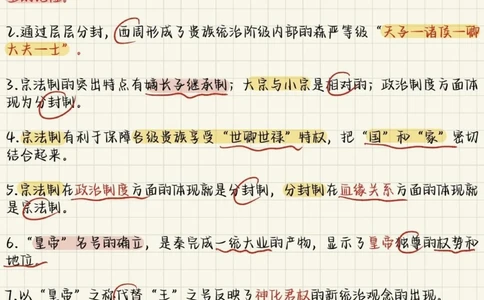 2.通过层层分封，西周形成了贵族统治阶级内部的森严等级“天子—诸侯—卿
大夫—士”。
3.宗法制的突出特点有嫡长子继承制；大宗与小宗是相对的；政治制度方面体
现为分封制。
4.宗法制有利于保障各级贵族享受“世卿世禄”特权，把“国”和“家”密切
结合起来。
5.宗法制在政治制度方面的体现就是分封制，分封制在血缘关系方面的体现就
是宗法制。
6.“皇帝”名号的确立，是秦完成一统大业的产物，显示了皇帝独尊的权势和
地位。
7.以“皇帝”之称代替“王”之号反映了神化君权的新统治观念的出现。